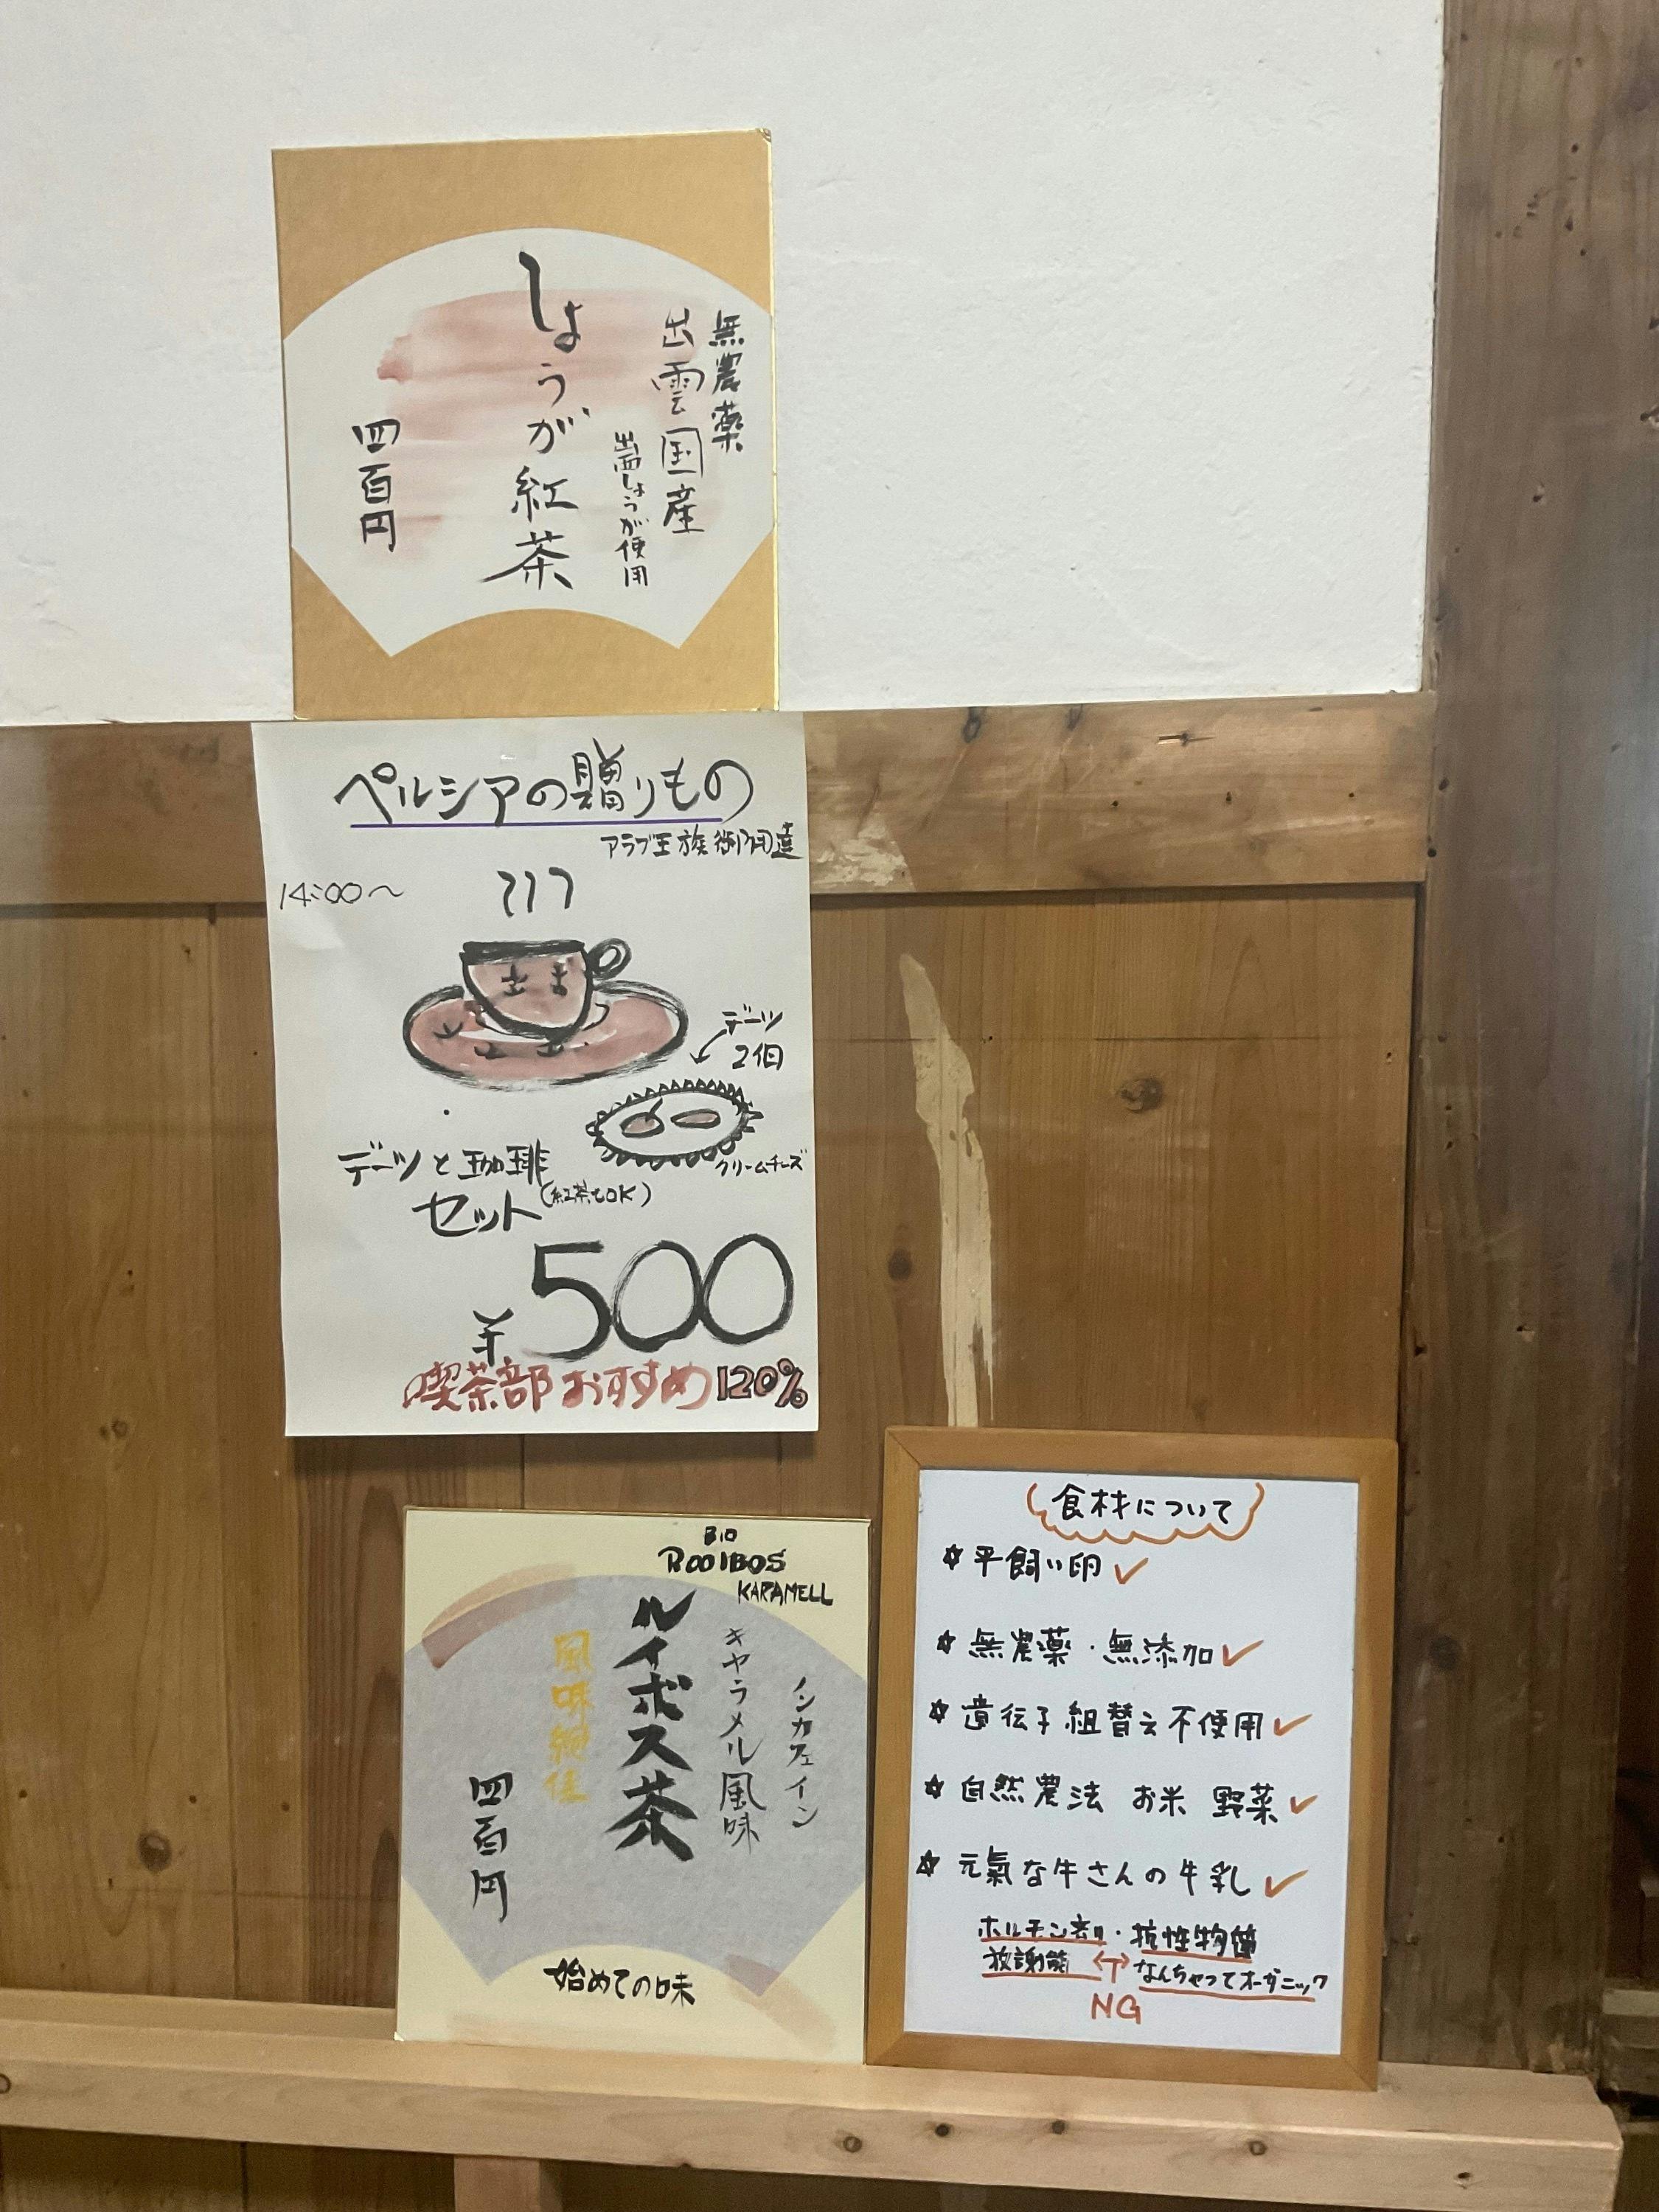 無農薬
出雲国産
出西しょうが使用
しょうが紅茶
四百円
ペルシアの贈りもの
アラブ王族御用達
14:00〜
デーツ
2個
クリームチーズ
デーツと珈琲
セット(紅茶もOK)
¥500
喫茶部おすすめ120%
BIO
ROOIBOS
KARAMELL
ノンカフェイン
キャラメル風味
ルイボス茶
風味絶佳
四百円
始めての味
食材について
☆平飼い卵✓
☆無農薬・無添加✓
☆遺伝子組替え不使用✓
☆自然農法 お米 野菜✓
☆元氣な牛さんの牛乳✓
ホルモン剤・抗性物菌
放謝能 ←→ なんちゃってオーガニック
NG